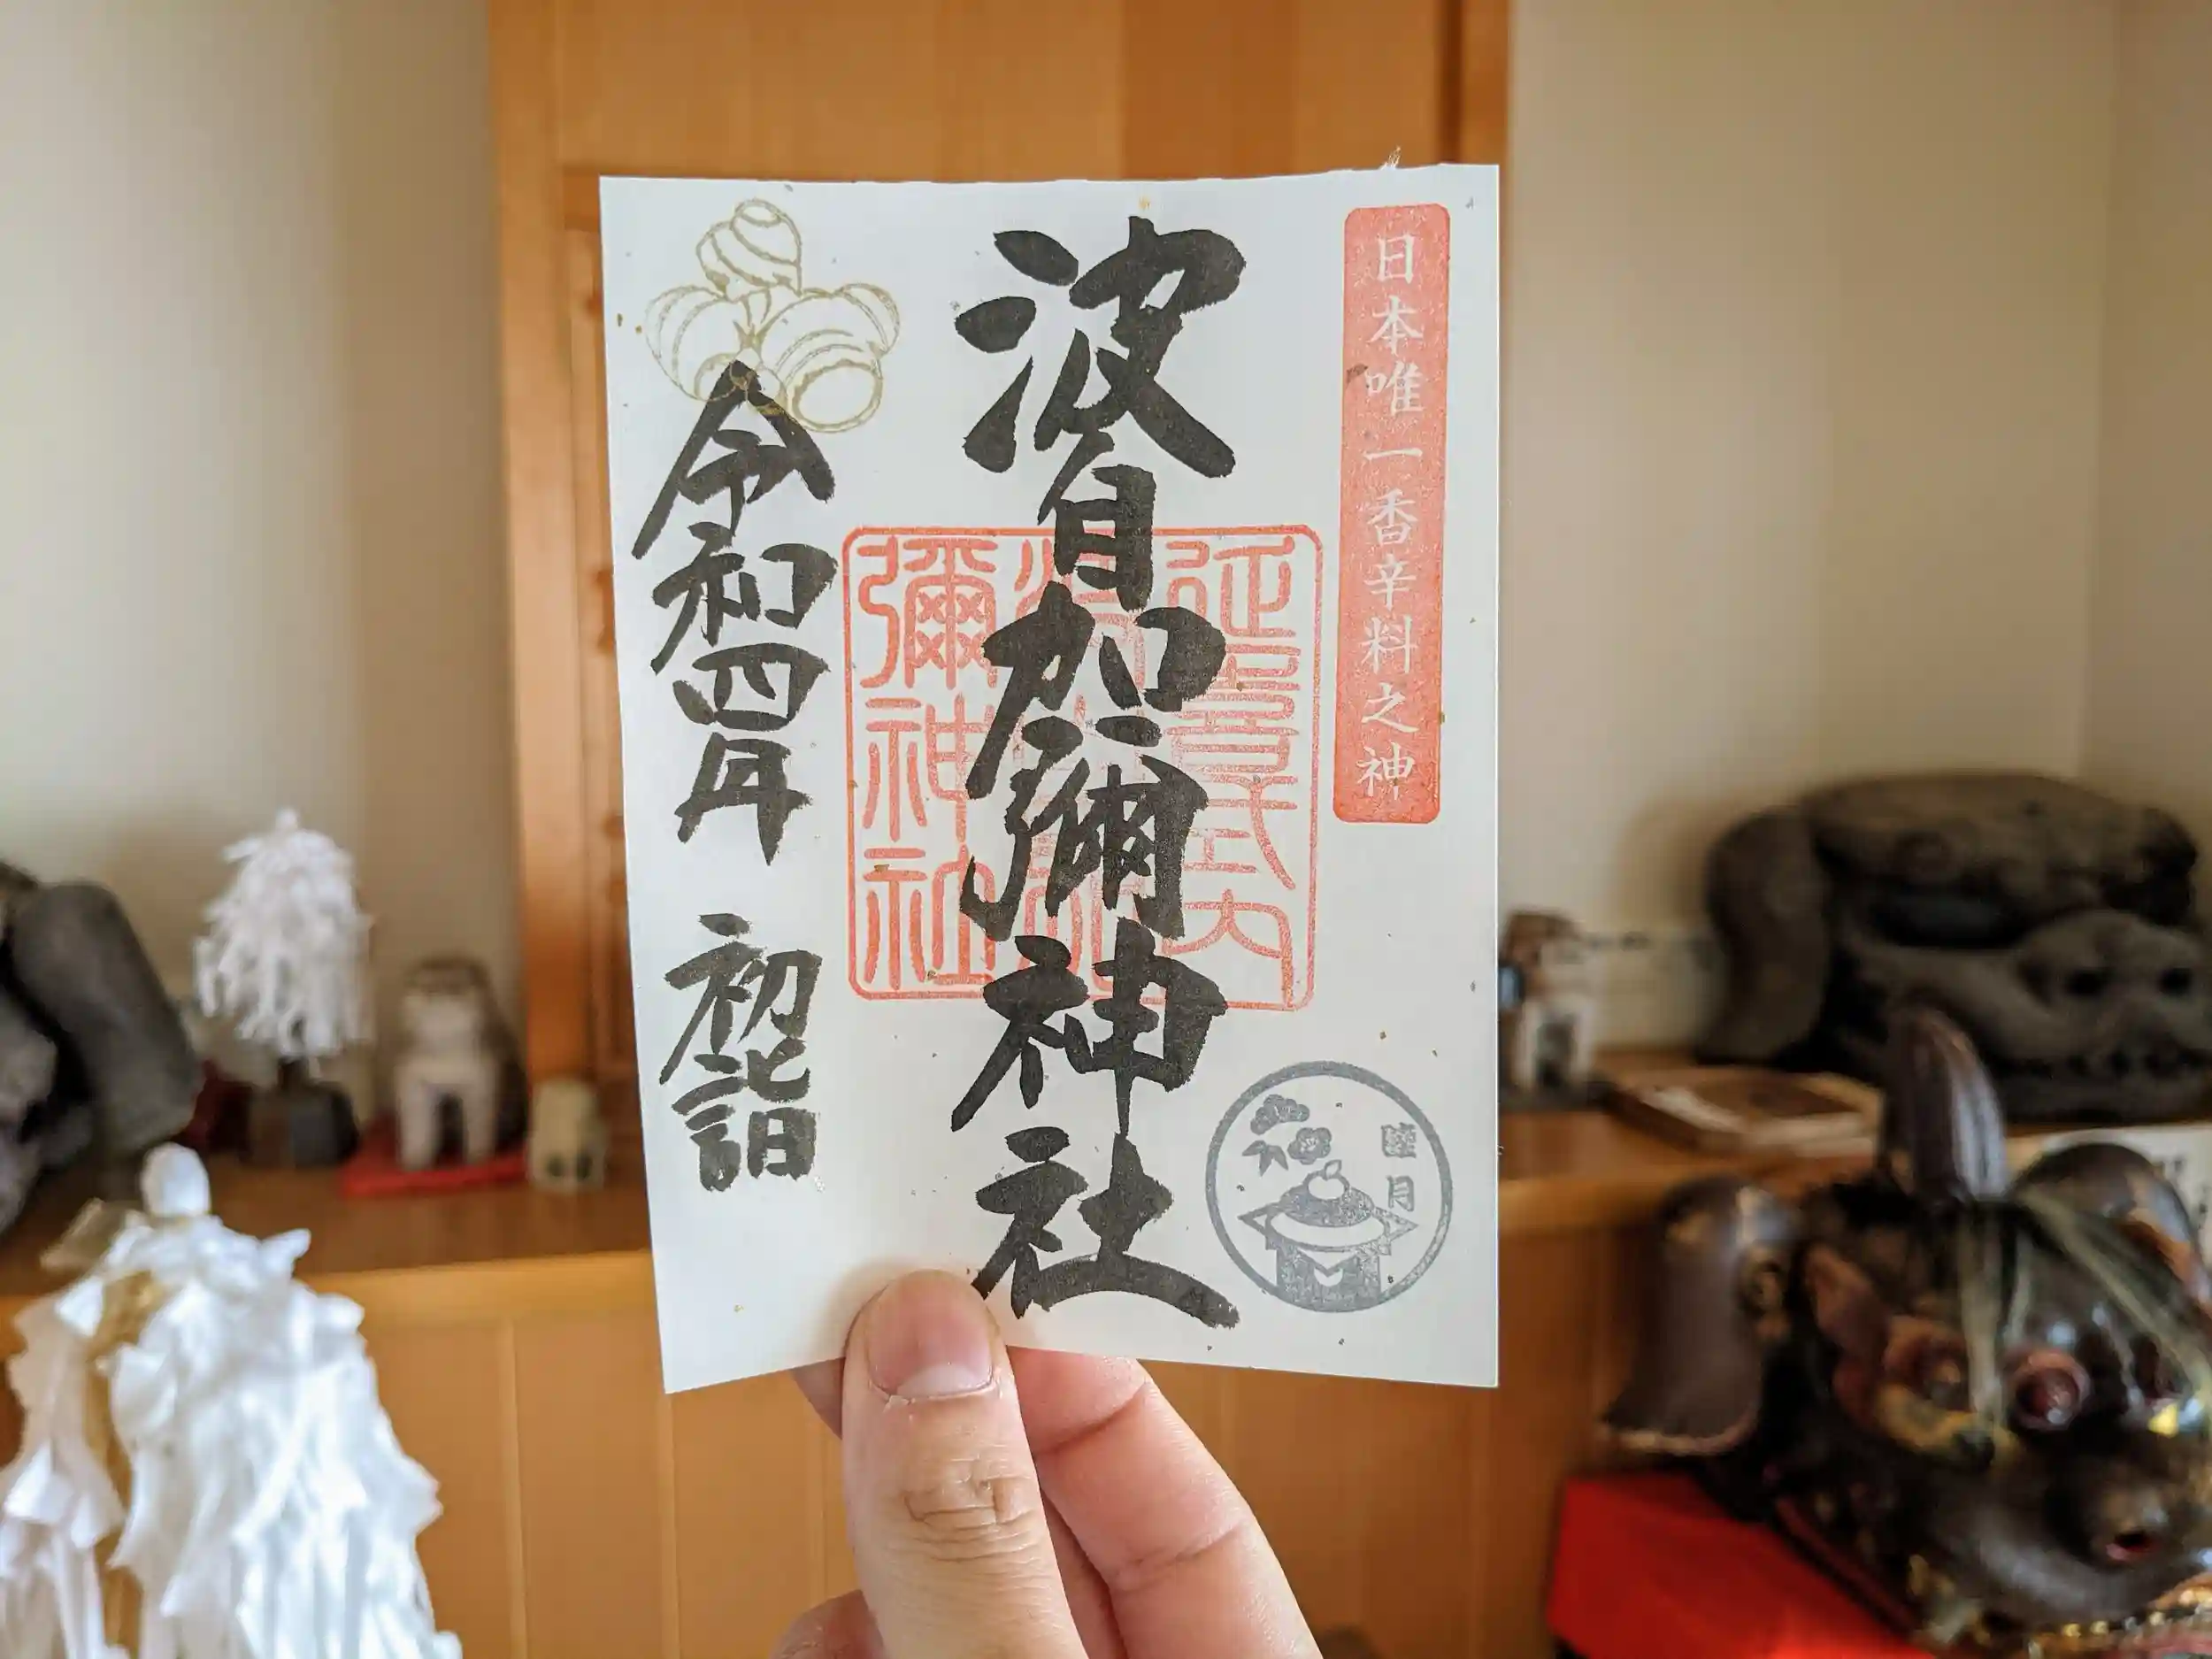 日本唯一香辛料之神
睦月
波自加彌神社
延喜式内
彌神社
令和四年 初詣